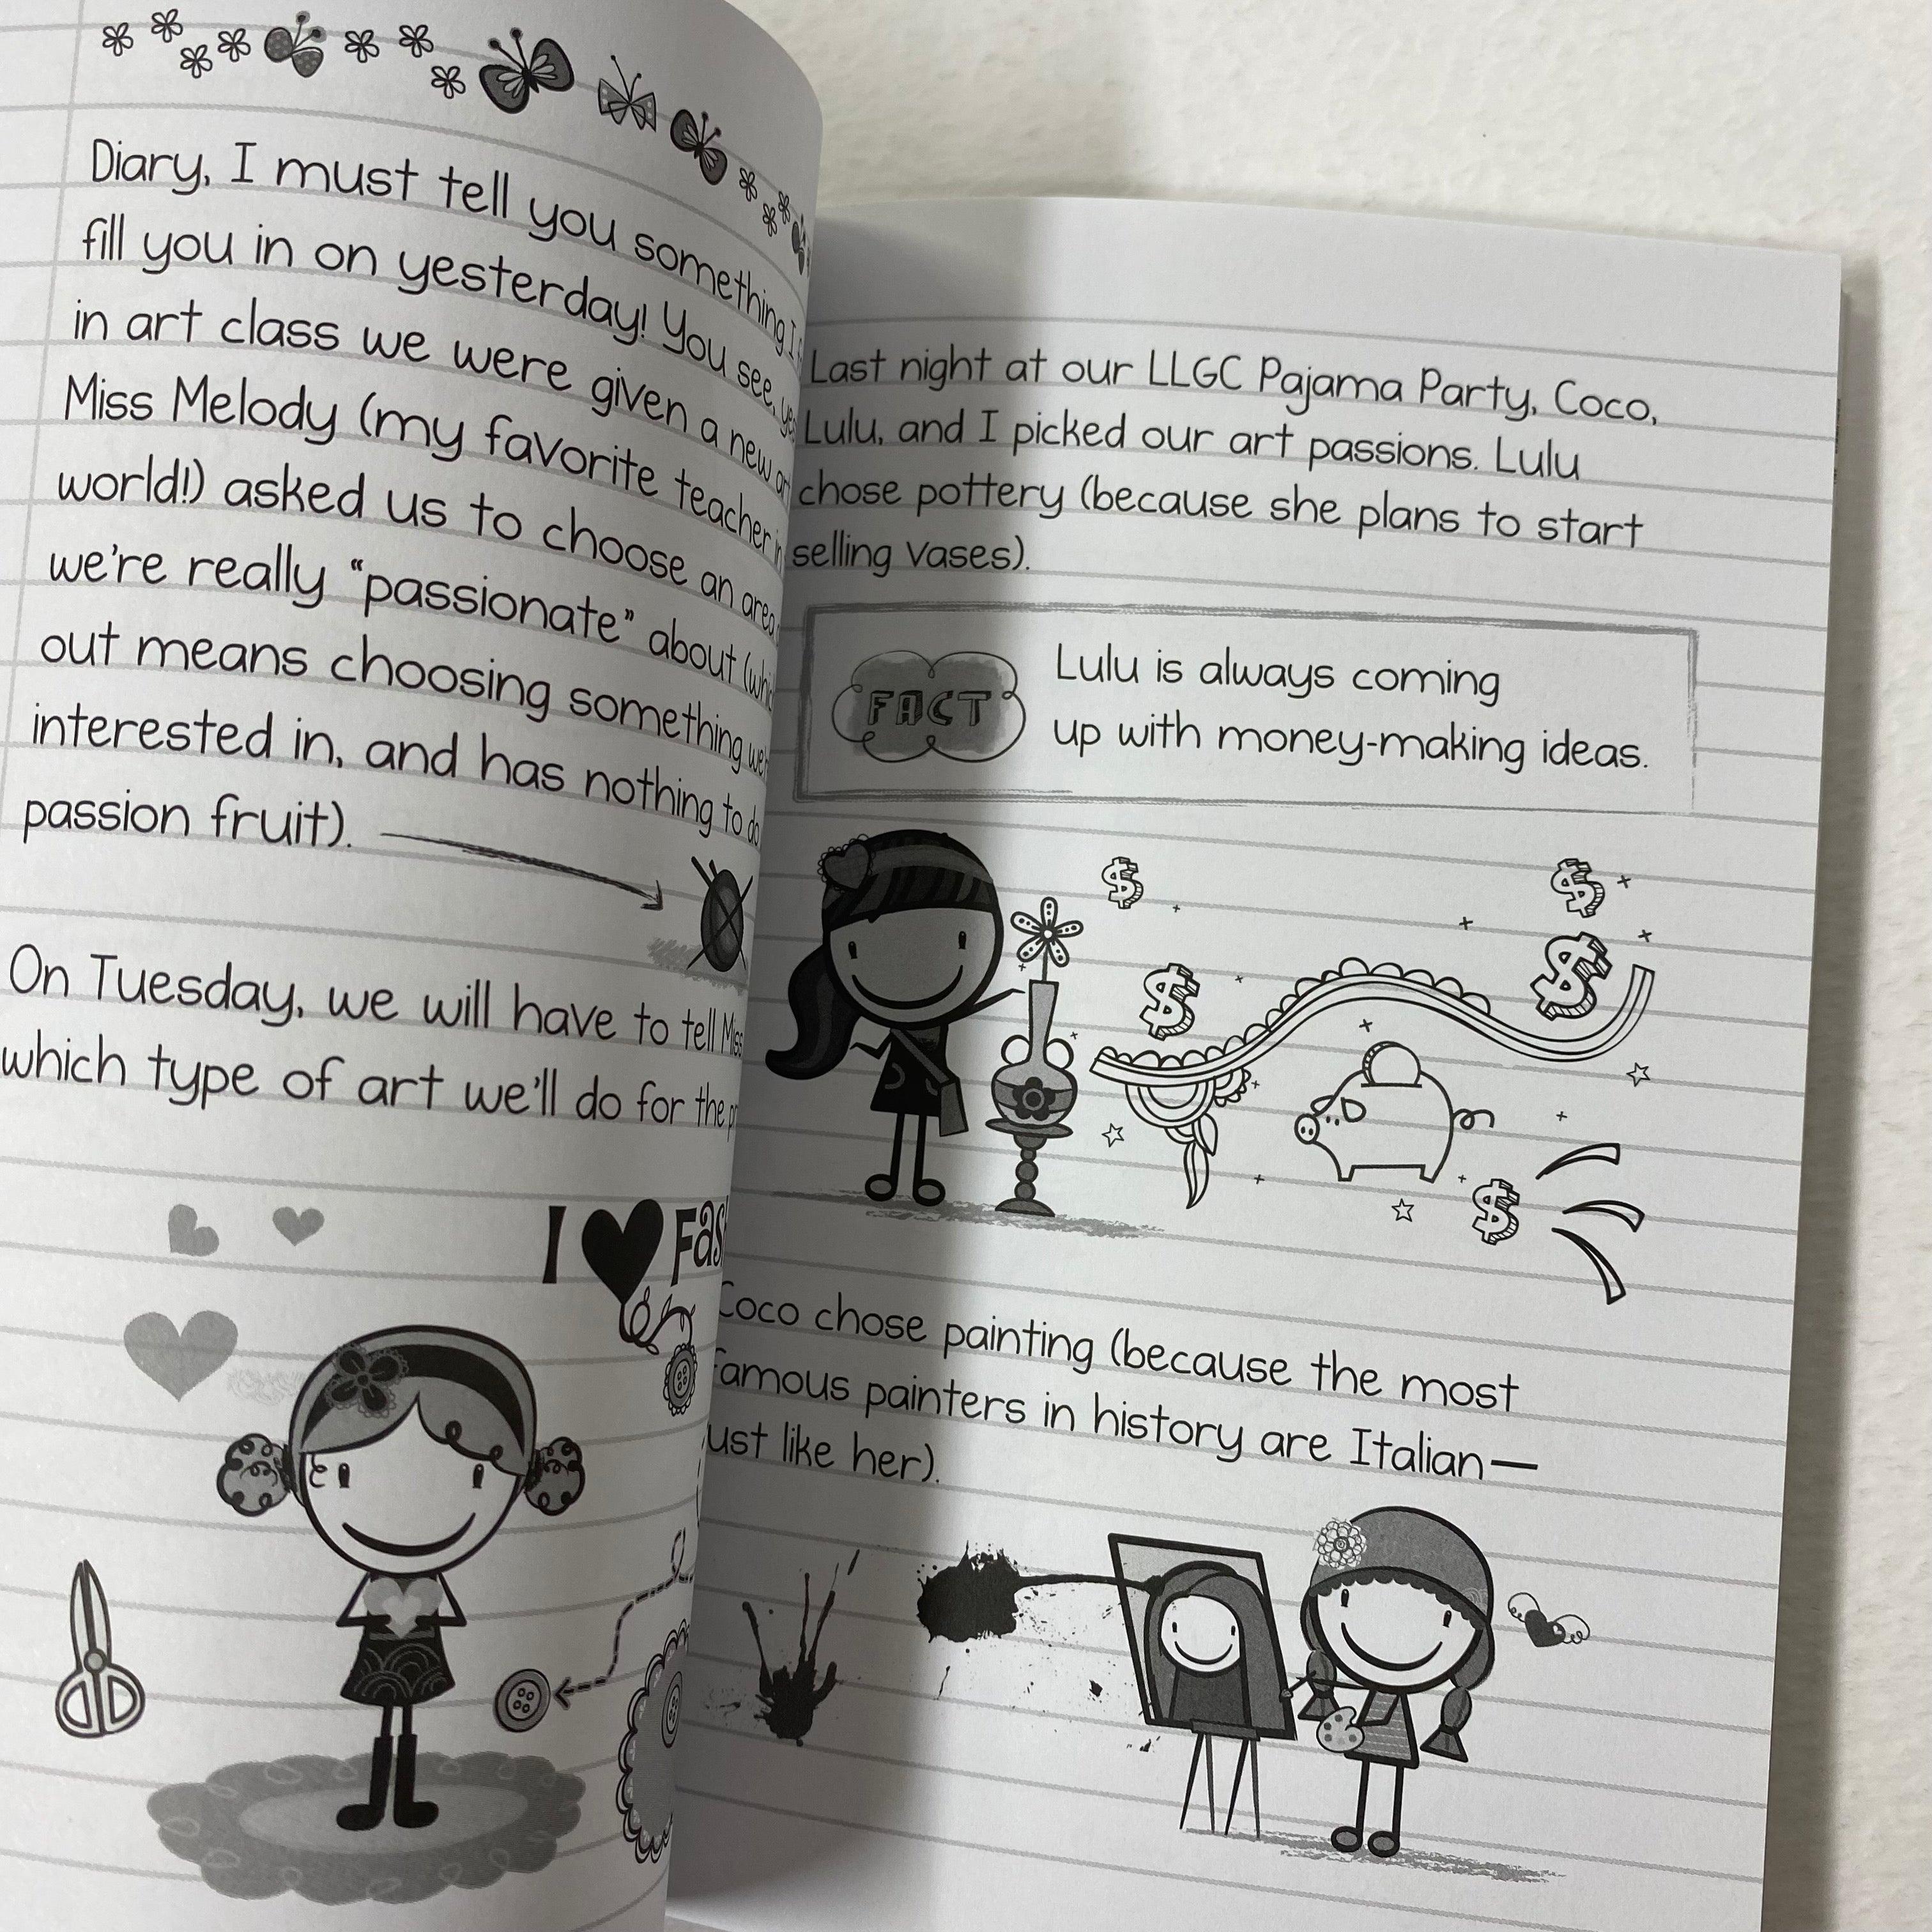 Diary, I must tell you something I
fill you in on yesterday! You see,
in art class we were given a new
Miss Melody (my favorite teacher in
world!) asked us to choose an area
we're really “passionate” about
out means choosing something
interested in, and has nothing to do
passion fruit).
On Tuesday, we will have to tell Miss
which type of art we'll do for the
I
Last night at our LLGC Pajama Party, Coco,
Lulu, and I picked our art passions. Lulu
chose pottery (because she plans to start
selling vases).
FACT
Lulu is always coming
up with money-making ideas.
$
$
$
$
$
Coco chose painting (because the most
famous painters in history are Italian—
just like her).